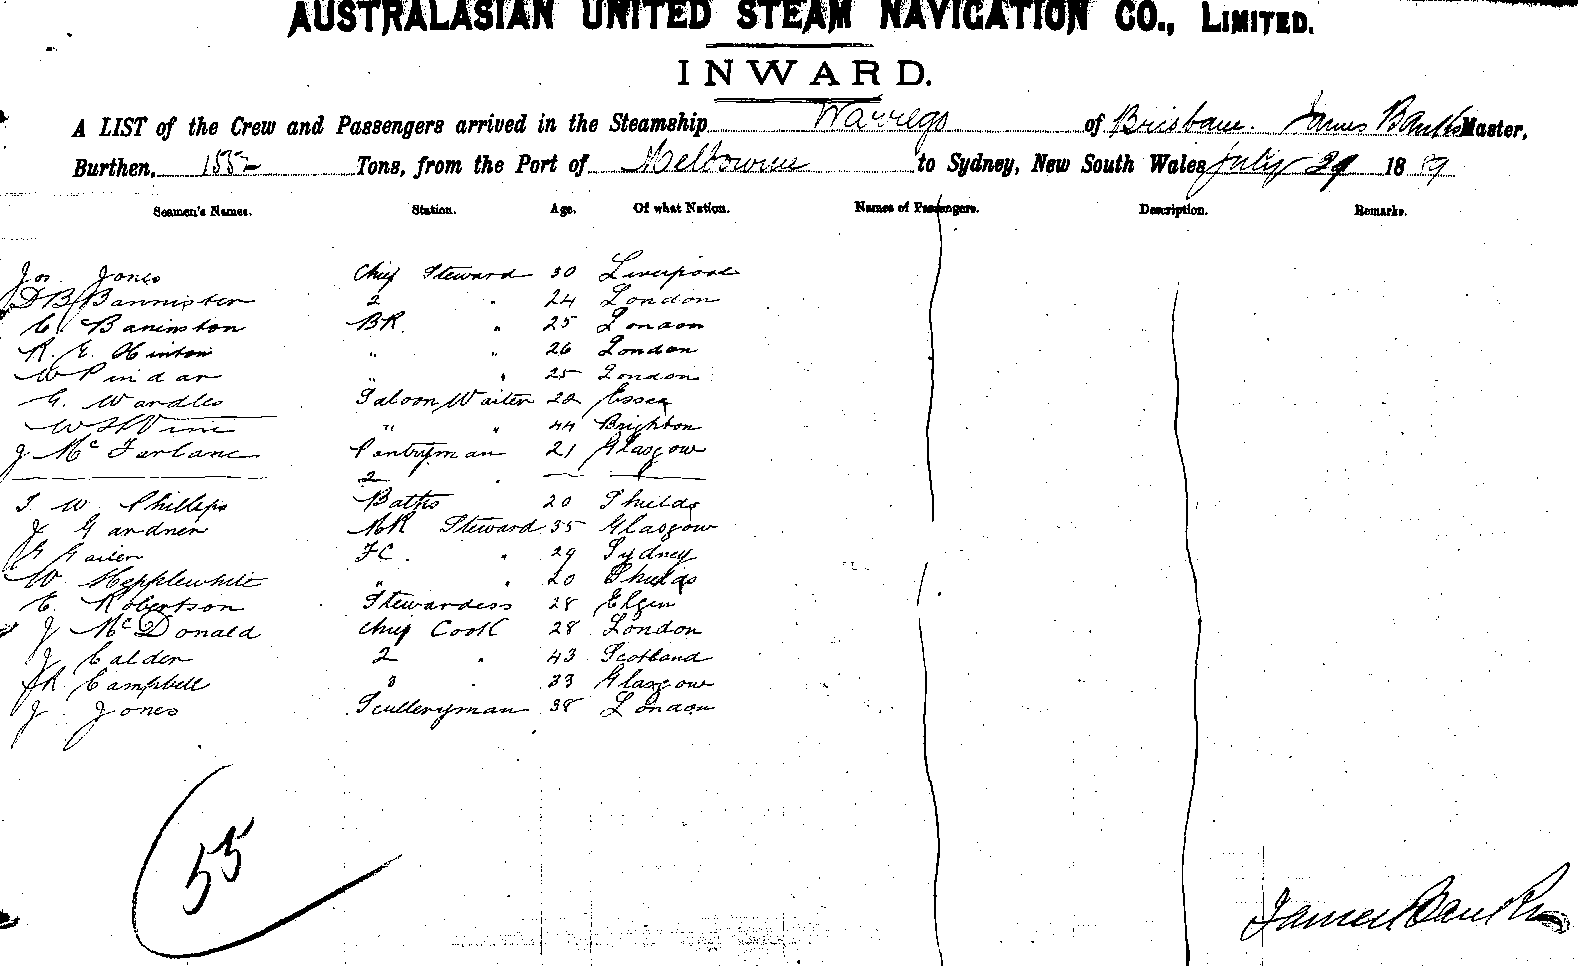 AUSTRALASIAN UNITED STEAM NAVIGATION CO., LIMITED.
INWARD.
A LIST of the Crew and Passengers arrived in the Steamship Warrego of Brisbane. James Banks Master,
Burthen, 155 Tons, from the Port of Melbourne to Sydney, New South Wales July 29 1889
Seamen's Names. Station. Age. Of what Nation. Names of Passengers. Description. Remarks.
Jos Jones Chief Steward 30 Liverpool
D B Bannister 2 " 24 London
C. Baninston BR. " 25 London
R. E. Hinton " " 26 London
W Pindar " " 25 London
G. Wardles Saloon Waiter 20 Essex
W Vine " " 44 Brighton
J McFarlane Pantryman 21 Glasgow
— 2 " — —
T W Phillips Baths 20 Shields
J Gardner BR Steward 35 Glasgow
G FC. " 29 Sydney
W. Hepplewhite " " 20 Shields
E. Robertson Stewardess 28 Elgin
J McDonald Chief Cook 28 London
J Calder 2 " 43 Scotland
JR Campbell 3 " 33 Glasgow
J Jones Sculleryman 38 London
55
James Banks